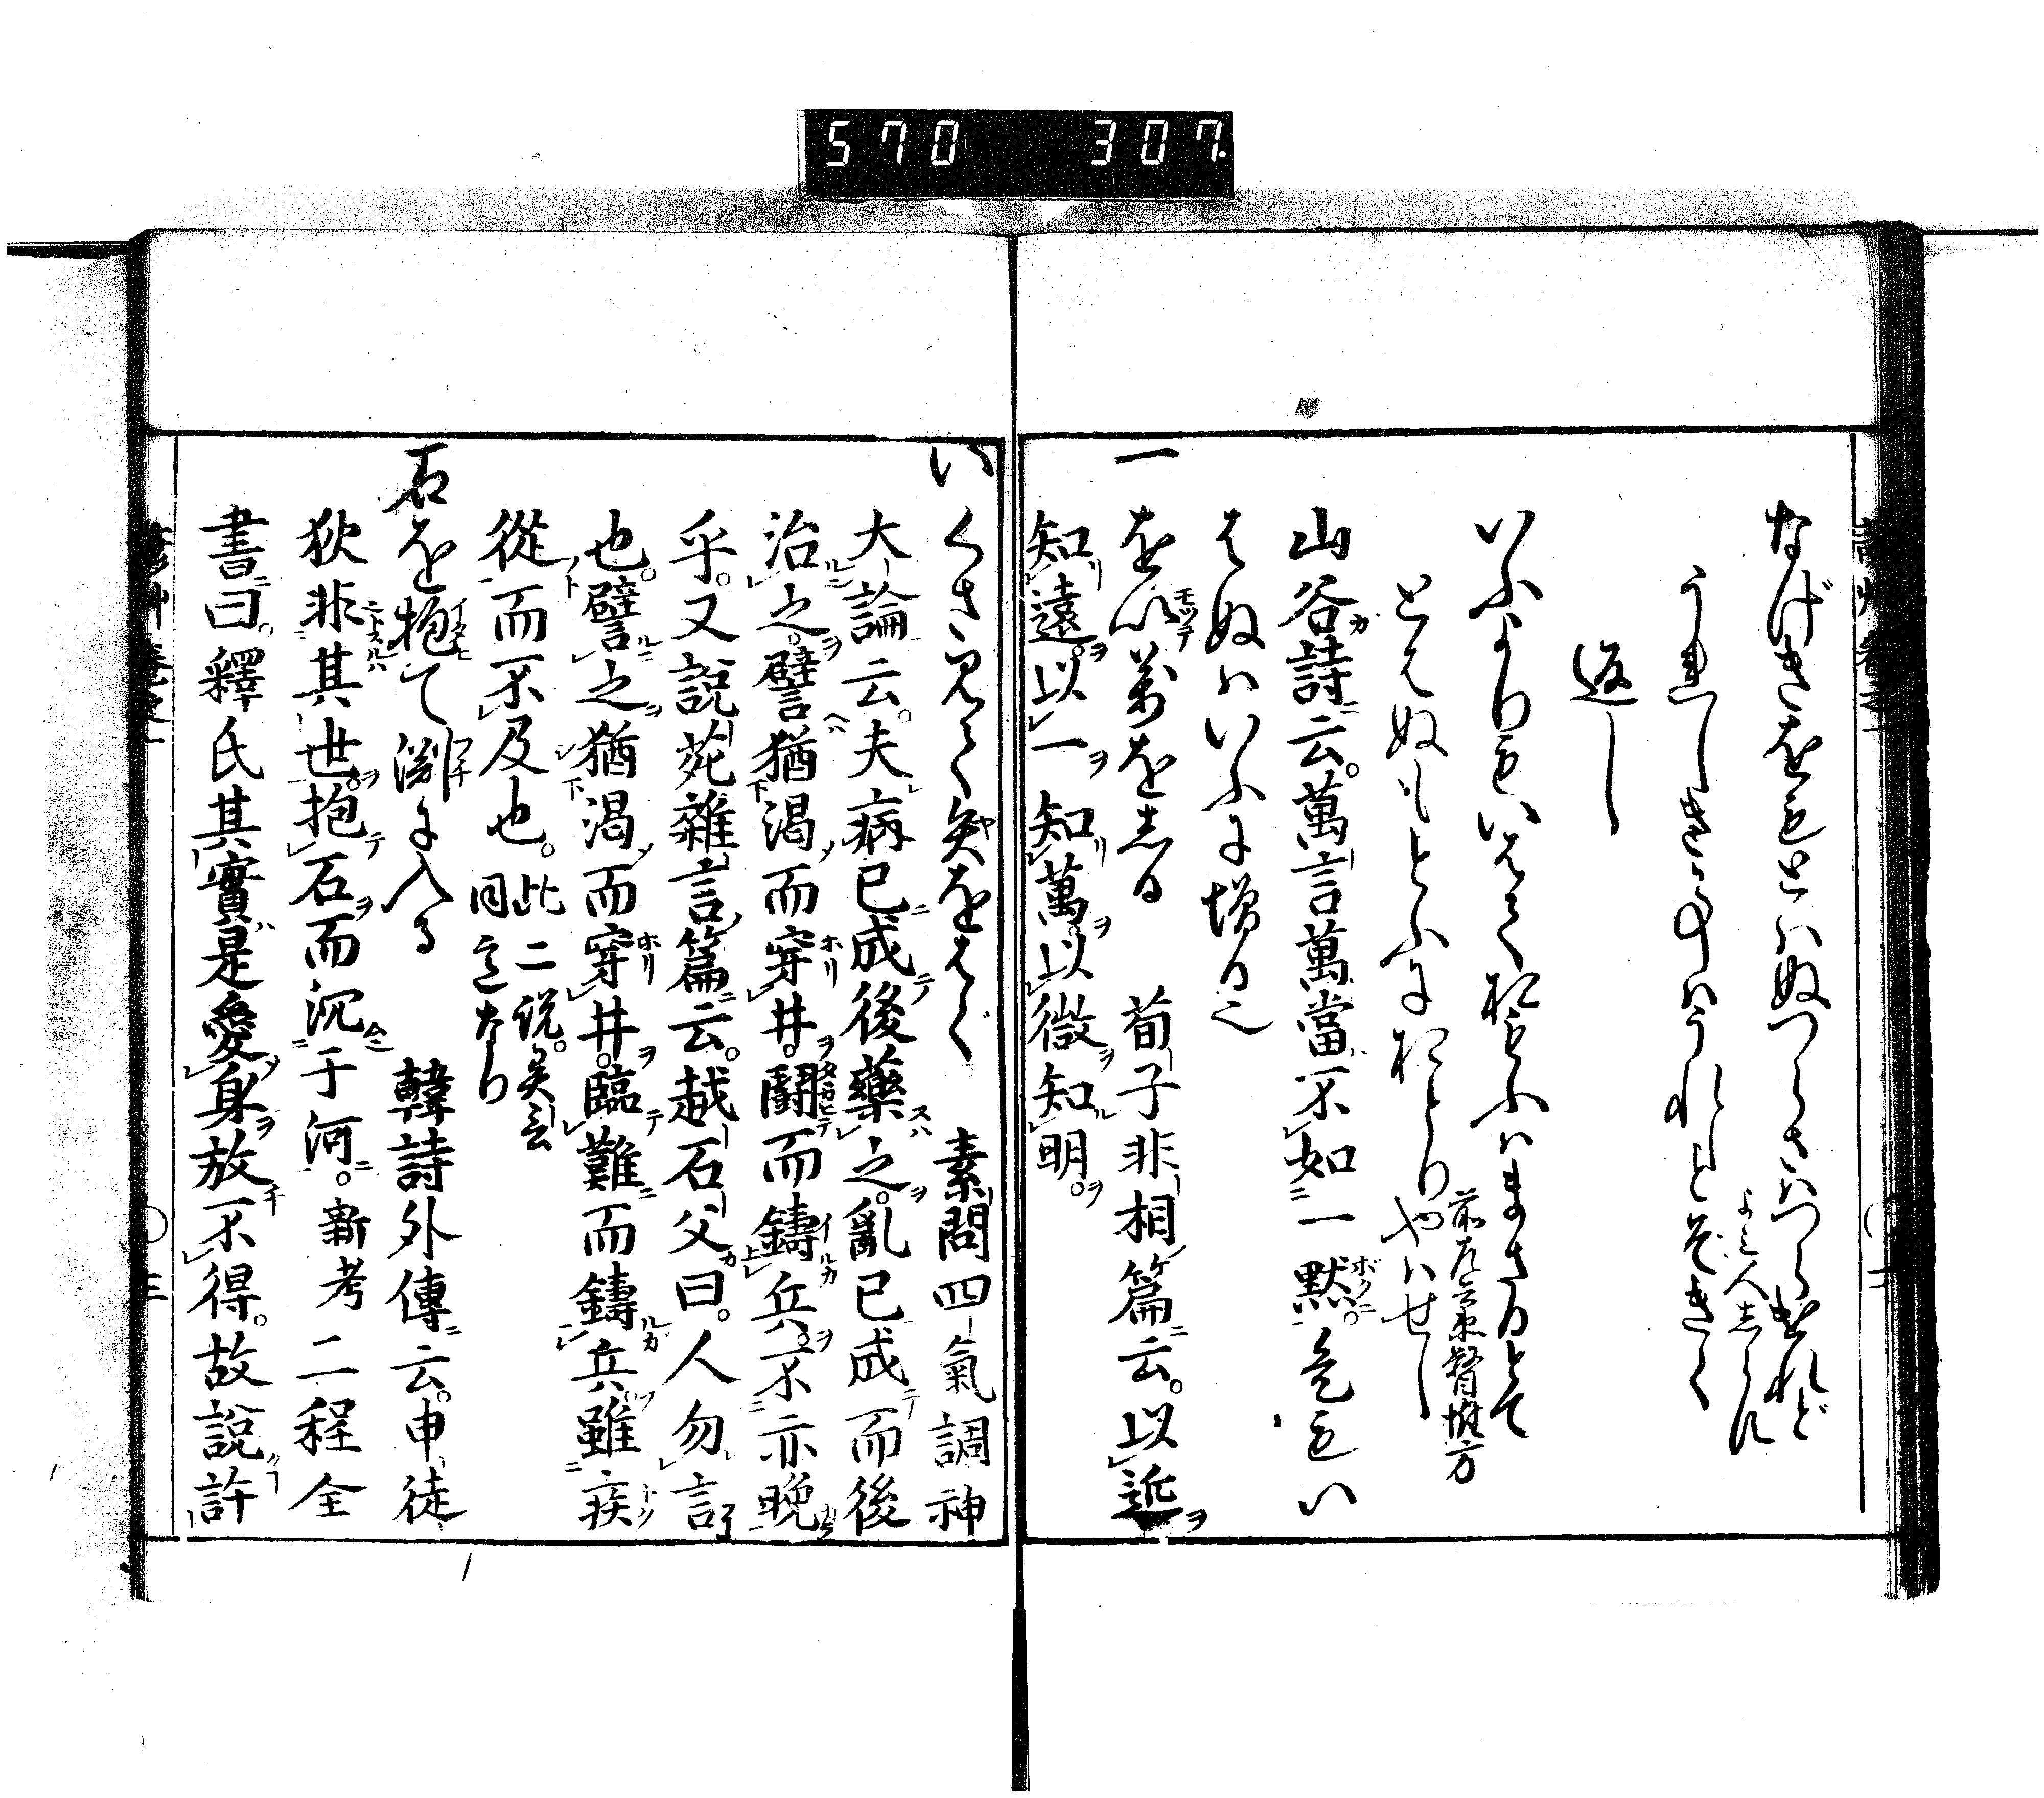 570 307.
なげきをもとはぬつらさはつらけれど
うれしきことはうれしとぞきく よみ人しらず
返し
いふよりもいはで思ふはまさるとて
とはぬもとふにおとりやはせし 前左兵衛督惟方
山谷詩云。萬言萬當不如一默。是もい
はぬはいふに増る也
一を以萬をしる 荀子非相篇云。以近
知遠。以一知萬。以微知明。
いくさ見て矢をはぐ 素問四氣調神
大論云。夫病已成後藥之。亂已成而後
治之。譬猶渴而穿井。鬪而鑄兵。不亦晚
乎。又說苑雜言篇云。越石父曰。人勿言
也。譬之猶渴而穿井。臨難而鑄兵。雖疾
從而不及也。此二説。
同意なり
石を抱て淵に入る 韓詩外傳云。申徒
狄非其世。抱石而沉于河。新考二程全
書曰。釋氏其實是愛身放不得。故說許